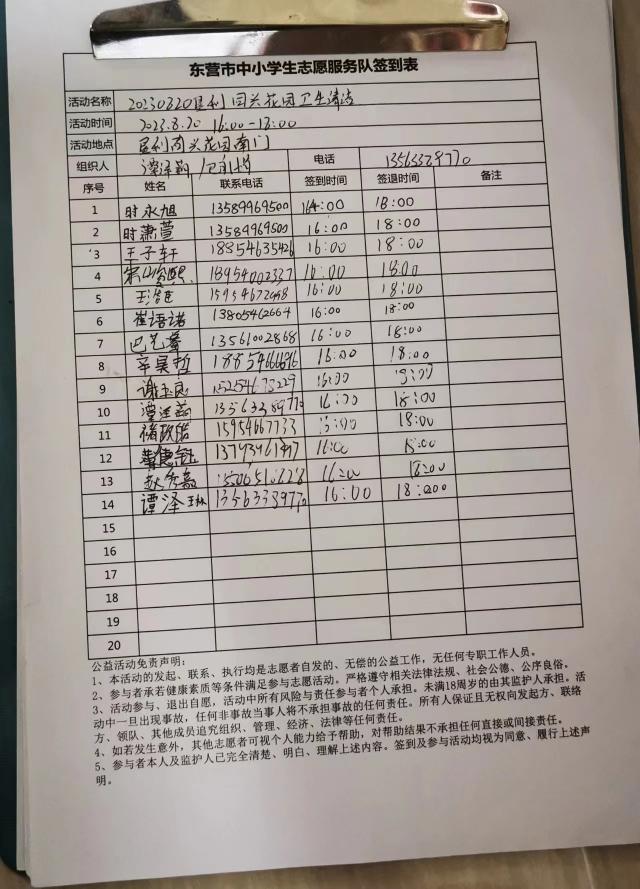 东营市中小学生志愿服务队签到表
活动名称 20230820垦利同兴花园卫生清洁
活动时间 2023.8.20 16:00-18:00
活动地点 垦利同兴花园南门
组织人 电话 13563389770
序号 姓名 联系电话 签到时间 签退时间 备注
1 时永旭 13589969500 16:00 18:00
2 时萧萱 13589969500 16:00 18:00
3 王子轩 18854635426 16:00 18:00
4 18954002337 16:00 18:00
5 16:00 18:00
6 崔语诺 13805462664 16:00 18:00
7 13561002868 16:00 18:00
8 辛昊哲 18854666696 16:00 18:00
9 谢玉良 16:00 18:00
10 13563389770 16:00 18:00
11 褚政诺 15954667733 18:00
12 16:00 18:00
13 16:00 18:00
14 谭泽琳 16:00 18:000
15
16
17
18
19
20
公益活动免责声明：
1、本活动的发起、联系、执行均是志愿者自发的、无偿的公益工作，无任何专职工作人员。
2、参与者承若健康素质等条件满足参与志愿活动。严格遵守相关法律法规、社会公德、公序良俗。
3、活动参与、退出自愿，活动中所有风险与责任参与者个人承担。未满18周岁的由其监护人承担。活
动中一旦出现事故，任何非事故当事人将不承担事故的任何责任。所有人保证且无权向发起方、联络
方、领队、其他成员追究组织、管理、经济、法律等任何责任。
4、如若发生意外，其他志愿者可视个人能力给予帮助，对帮助结果不承担任何直接或间接责任。
5、参与者本人及监护人已完全清楚、明白、理解上述内容。签到及参与活动均视为同意、履行上述声
明。